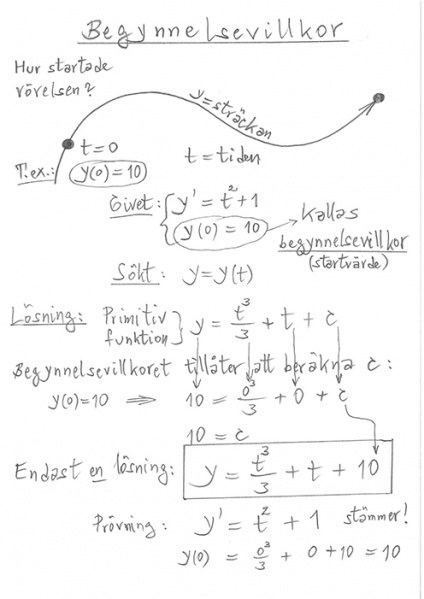 Begynnelsevillkor
Hur startade
rörelsen?
y=sträckan
t=0
t=tiden
T.ex.: y(0)=10
Givet: y' = t²+1
y(0) = 10
Kallas
begynnelsevillkor
(startvärde)
Sökt: y=y(t)
Lösning: Primitiv funktion } y = t³/3 + t + c
Begynnelsevillkoret tillåter att beräkna c:
y(0)=10 ⇒ 10 = 0³/3 + 0 + c
10 = c
Endast en lösning: y = t³/3 + t + 10
Prövning: y' = t² + 1 stämmer!
y(0) = 0³/3 + 0+10 = 10